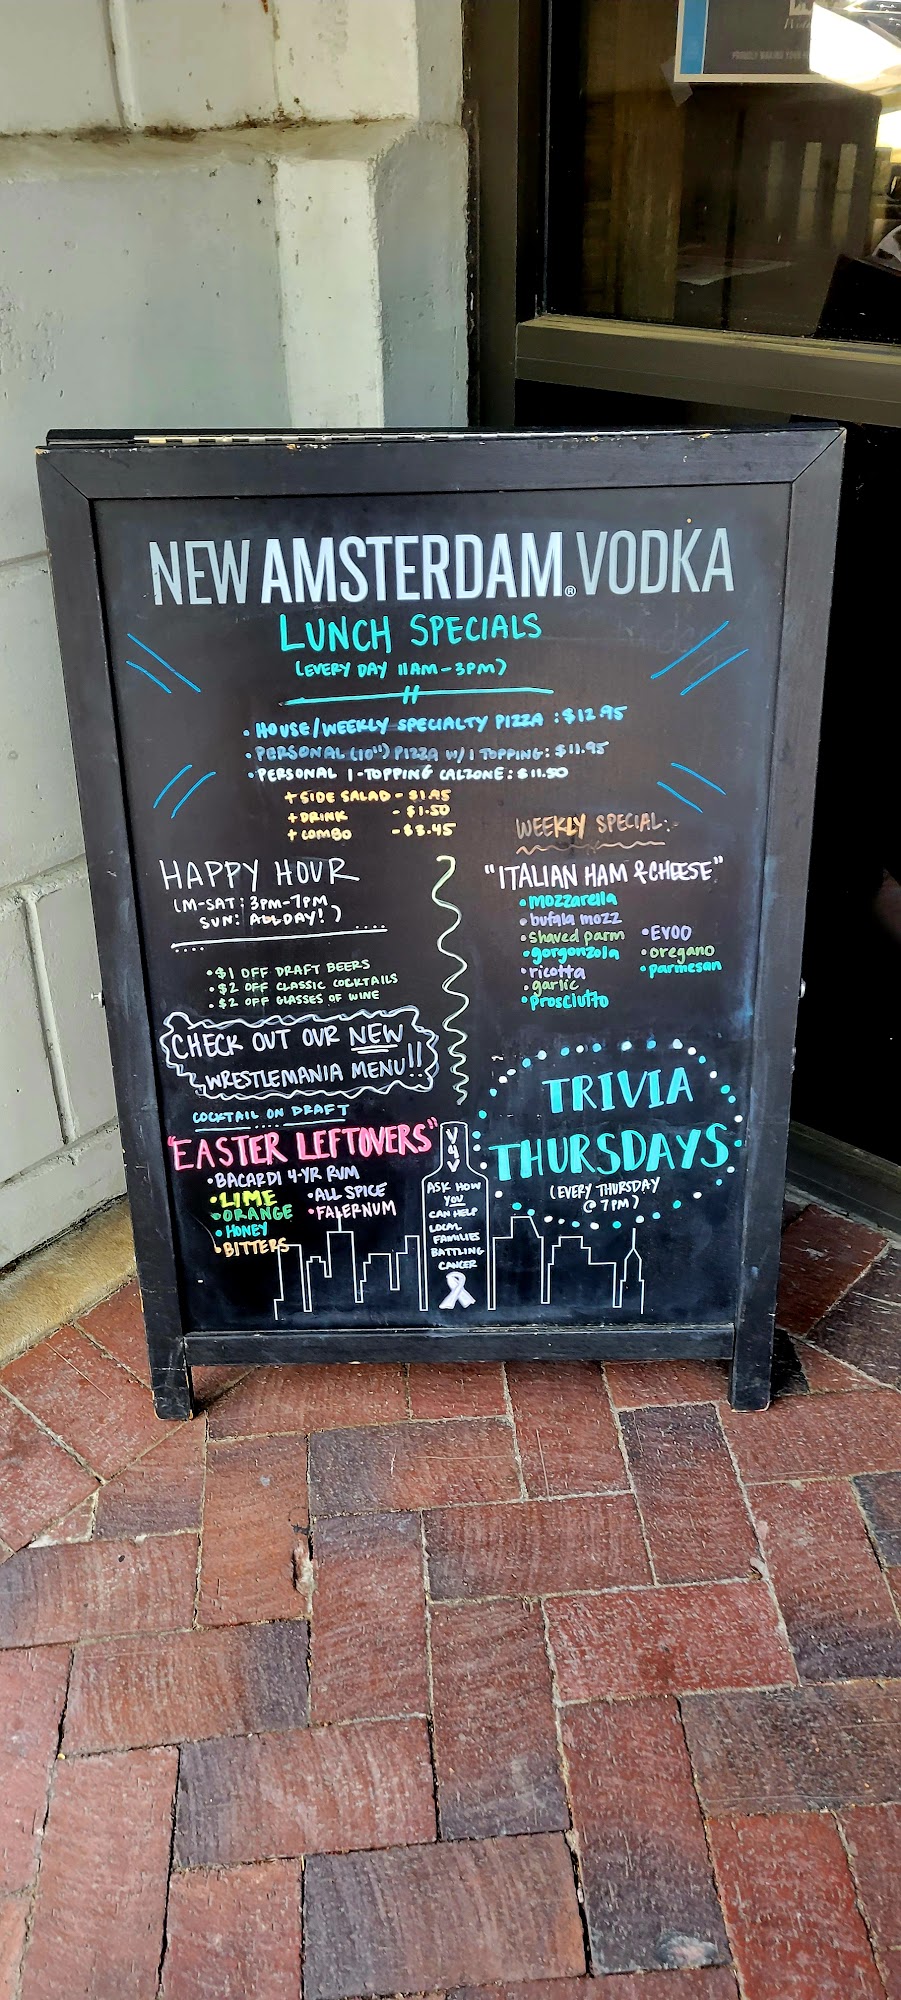 NEW AMSTERDAM® VODKA
LUNCH SPECIALS
(EVERY DAY 11AM-3PM)
• HOUSE/WEEKLY SPECIALTY PIZZA : $12.95
• PERSONAL (10") PIZZA W/ 1 TOPPING: $11.95
• PERSONAL 1-TOPPING CALZONE: $11.50
+ SIDE SALAD - $1.95
+ DRINK - $1.50
+ COMBO - $3.45
HAPPY HOUR
(M-SAT: 3PM-7PM
SUN: ALL DAY!)
• $1 OFF DRAFT BEERS
• $2 OFF CLASSIC COCKTAILS
• $2 OFF GLASSES OF WINE
CHECK OUT OUR NEW
WRESTLEMANIA MENU!!
COCKTAIL ON DRAFT
"EASTER LEFTOVERS"
• BACARDI 4-YR RUM
• LIME
• ORANGE
• HONEY
• BITTERS
• ALL SPICE
• FALERNUM
WEEKLY SPECIAL:
"ITALIAN HAM & CHEESE"
• mozzarella
• bufala mozz
• shaved parm
• gorgonzola
• ricotta
• garlic
• prosciutto
• EVOO
• oregano
• parmesan
TRIVIA
THURSDAYS
(EVERY THURSDAY
@ 7PM)
V4V
ASK HOW
YOU
CAN HELP
LOCAL
FAMILIES
BATTLING
CANCER